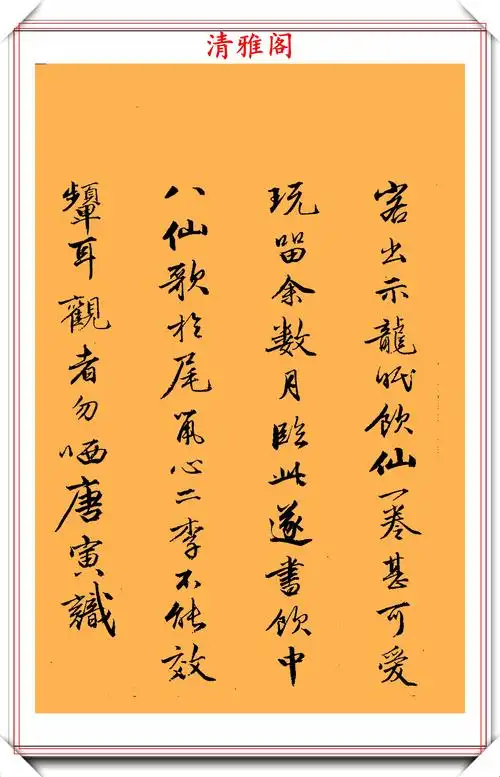 清雅阁
客出示龍眠飲仙一卷甚可愛
玩留余数月臨此遂書飲中
八仙歌於尾心二李不能效
顰耳觀者勿哂唐寅識